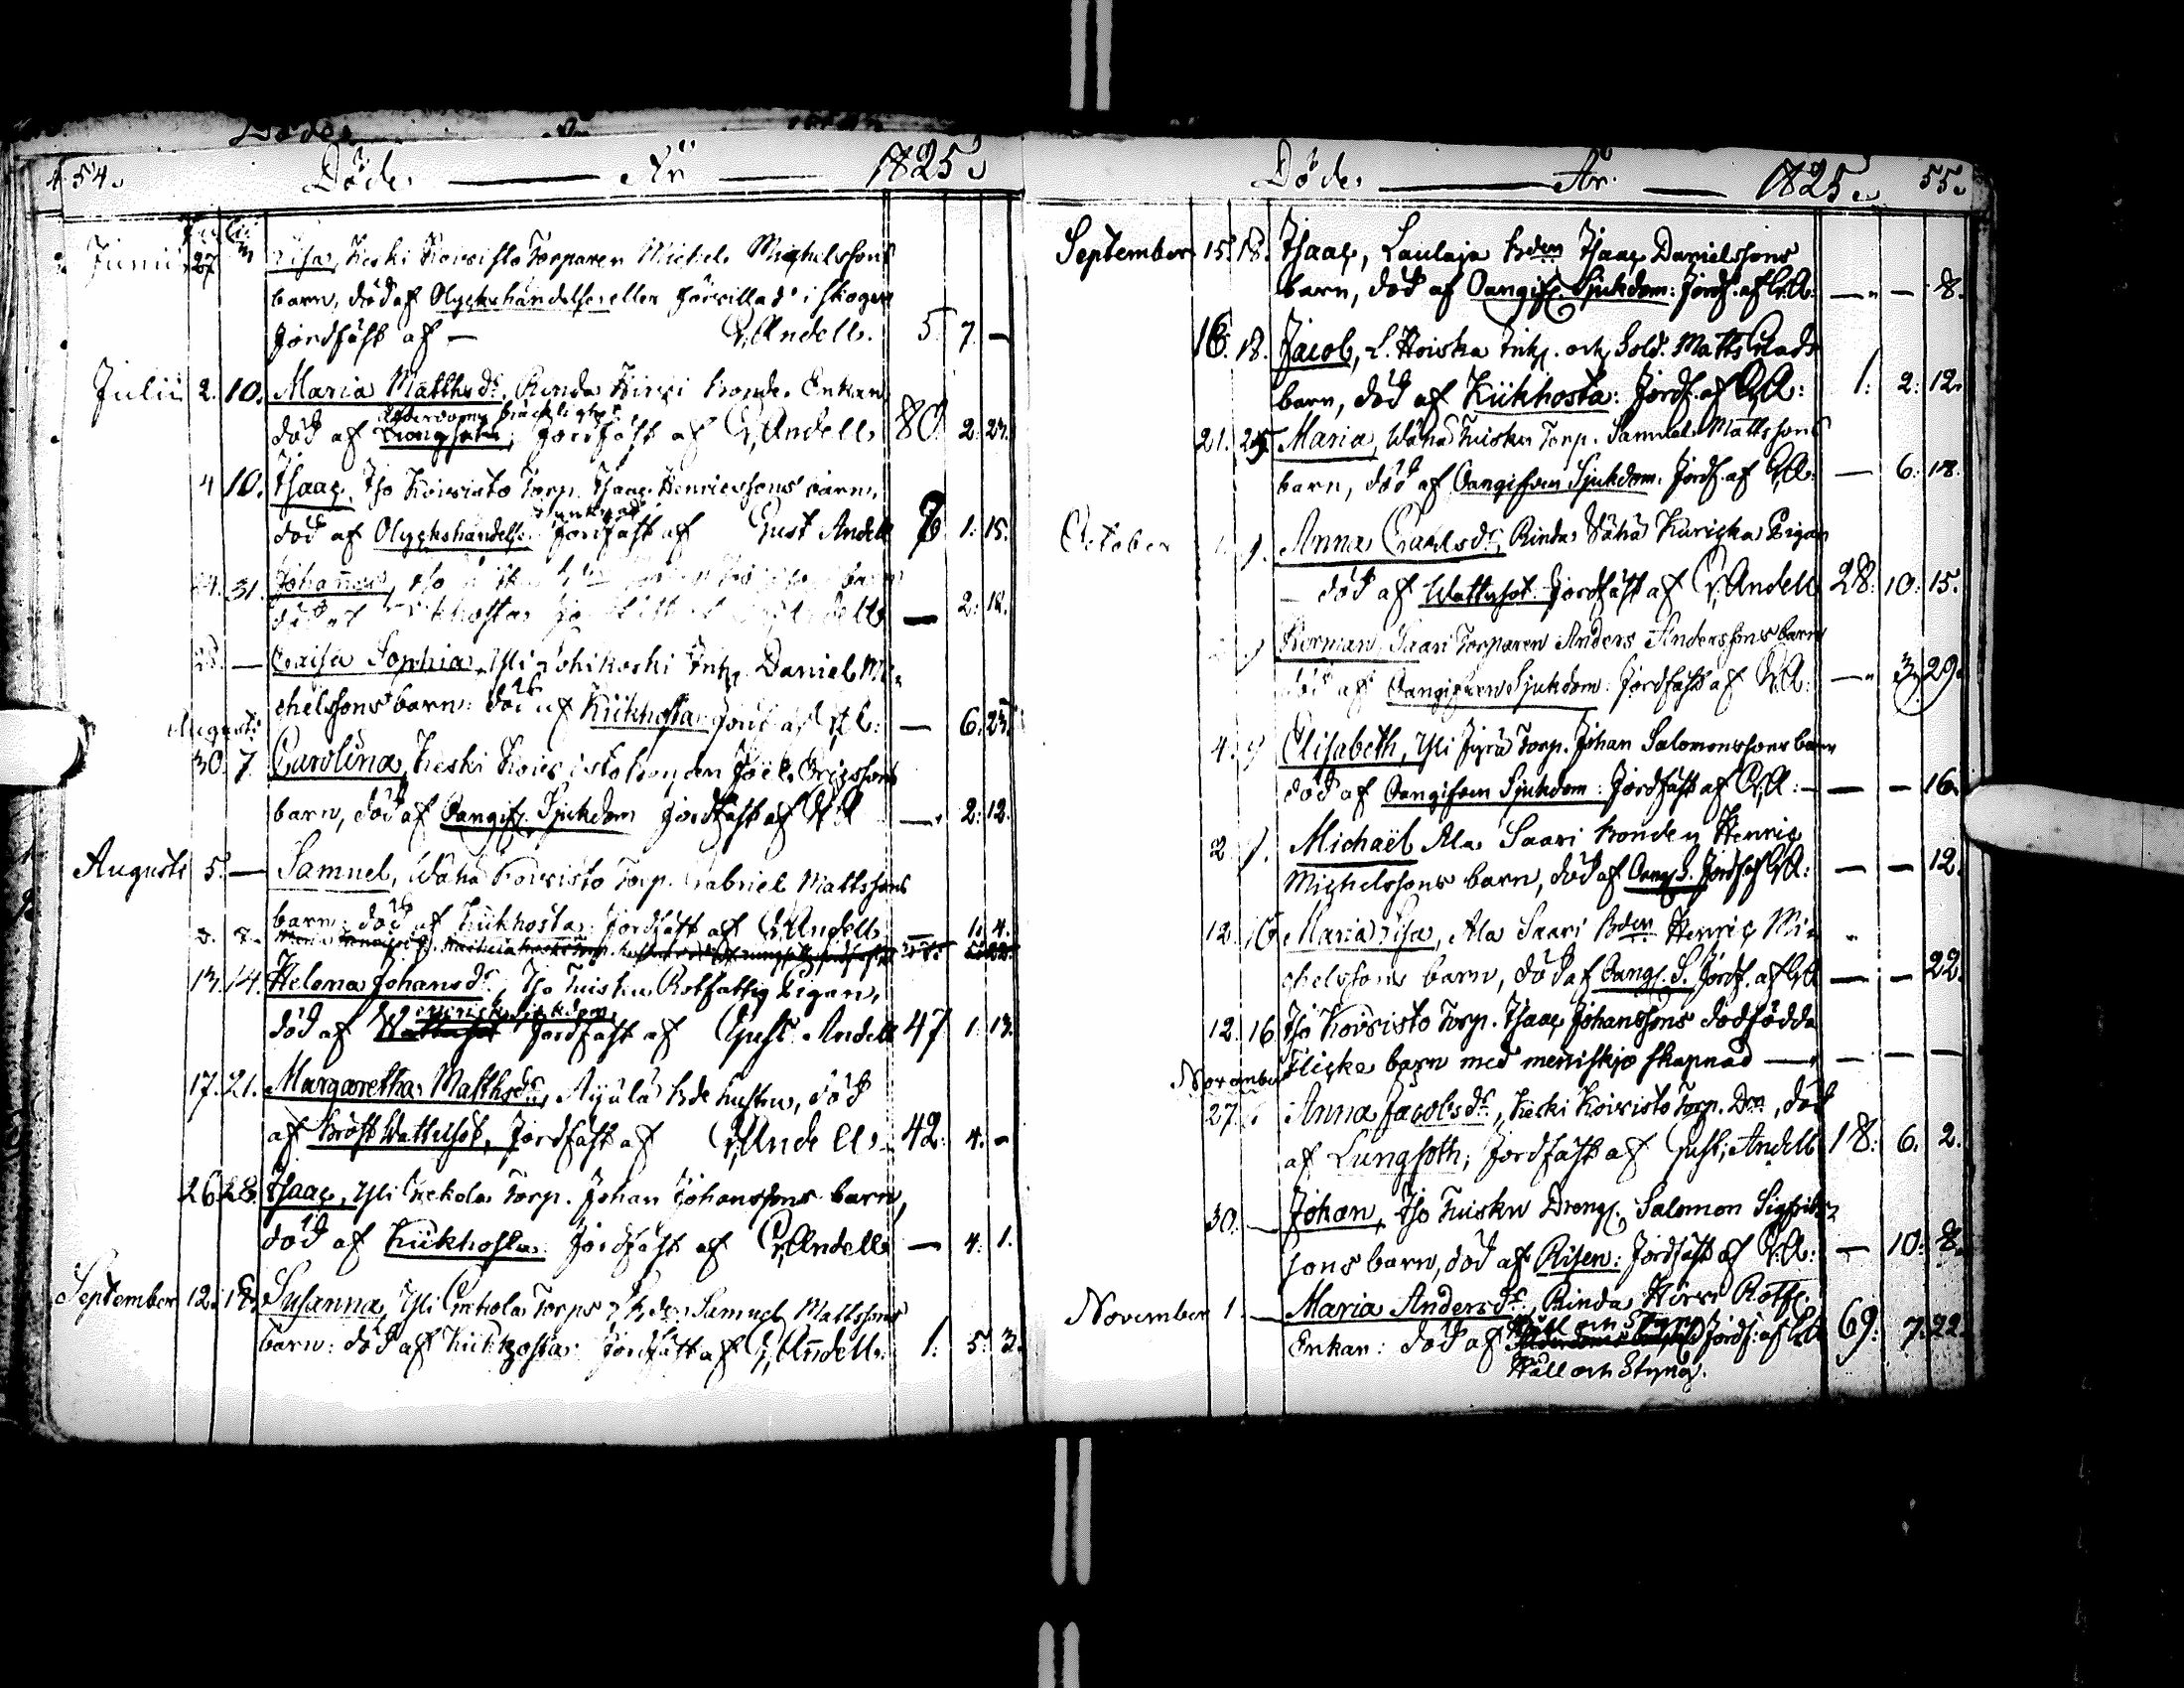 54. Döde. År 1825.
Junii 27 Lisa, Keski Koivisto Torparen Michel Michelssons
barn, död af Olyckshändelse eller förvillad i skogen
Jordfäst af — G. Andell. 5. 7. —
Julii 2. 10. Maria Matthsdr, Rinda Hirvi bonde Enkan
Ålderdoms bräcklighet
död af Jordfäst af G. Andell. 80. 2. 27.
4 10. Isaac, Iso Koivisto Torp. Isaac Henricssons barn,
död af Olyckshändelse Jordfäst af Gust Andell 1. 15.
24. 31. Johannes, Iso barn
död af Kikhosta — 2. 12.
25. — Lovisa Sophia, Yli Inh. Daniel Mi-
chelssons barn: död af Kikhosta. Jord af G. A: — 6. 25.
Augusti
30. 7. Carolina, Keski Koivisto bonden Joël Ericssons
barn, död af Oangif. Sjukdom jordfäst af G. A —. 2. 12.
Augusti 5. — Samuel, Wähä Koivisto Torp. Gabriel Mattssons
barn: död af Kikhosta. Jordfäst af G. Andell. — 1. 4.
13. 14. Helena Johansdr, Iso Tuisku Rotfattig Pigan,
död af Jordfäst af Gust. Andell 47 1. 13.
17. 21. Margaretha Matthsdr, Äyälä bde hustru, död
af Bröst Wattusot, Jordfäst af G. Andell. 42. 4. -
26 28. Isaac, Yli Torp. Johan Johanssons barn,
död af Kikhosta. Jordfäst af G. Andell — 4. 1.
September 12. 18. Susanna, Yli Torps Samuel Mattssons
barn: död af Kikhosta. Jordfäst af G. Andell. 1. 5. 3.
Döde. År. 1825. 55.
September 15. 18. Isaac, Laulaja Bden Isaac Danielssons
barn, död af Oangif. Sjukdom: Jordf. af G. A: — — 8.
16. 18. Jacob, L. Inh. och Sold. Matts
barn, död af Kikhosta: Jordf. af G. A: 1. 2. 12.
21. 25. Maria, Wähä Tuisku Torp. Samuel Mattssons
barn, död af Oangifven Sjukdom. Jordf. af G. A: — 6. 18.
October 9. Anna Carlsdr, Rinda Wähä Pigan
död af Wattusot. Jordfäst af G. Andell 28. 10. 15.
9 Herman, Saari Torparen Anders Anderssons barn
död af Oangifven Sjukdom: Jordfäst af G. A: — 3. 29.
4. 9 Elisabeth, Yli Torp. Johan Salomonssons barn
död af Oangifven Sjukdom: Jordfäst af G. A: — — — 16.
2 9. Michaël Ala Saari bonden Henric
Michelssons barn, död af Oang. S. Jordf. af G. A: — — 12.
12. 16. Maria Lisa, Ala Saari Bden Henric Mi-
chelssons barn, död af Oangf. S. Jordf. af G. A — — 22.
12. 16. Iso Koivisto Torp. Isaac Johanssons dödfödda
Flicke barn med menniskjo skapnad — — — —
November
27. Anna Jacobsdr, Keski Koivisto Torp. Don, död
af Lungsoth; Jordfäst af Gust. Andell 18. 6. 2.
30. — Johan, Iso Tuisku Dreng. Salomon Sigfrids-
sons barn, död af Risen: Jordfäst af G. A: — 10. 8.
November 1. — Maria Andersdr, Rinda Hirvi Rotf.
Håll och Styng
Enkan: död af Jordf. af G. A 69. 7. 22.
Håll och Styng.